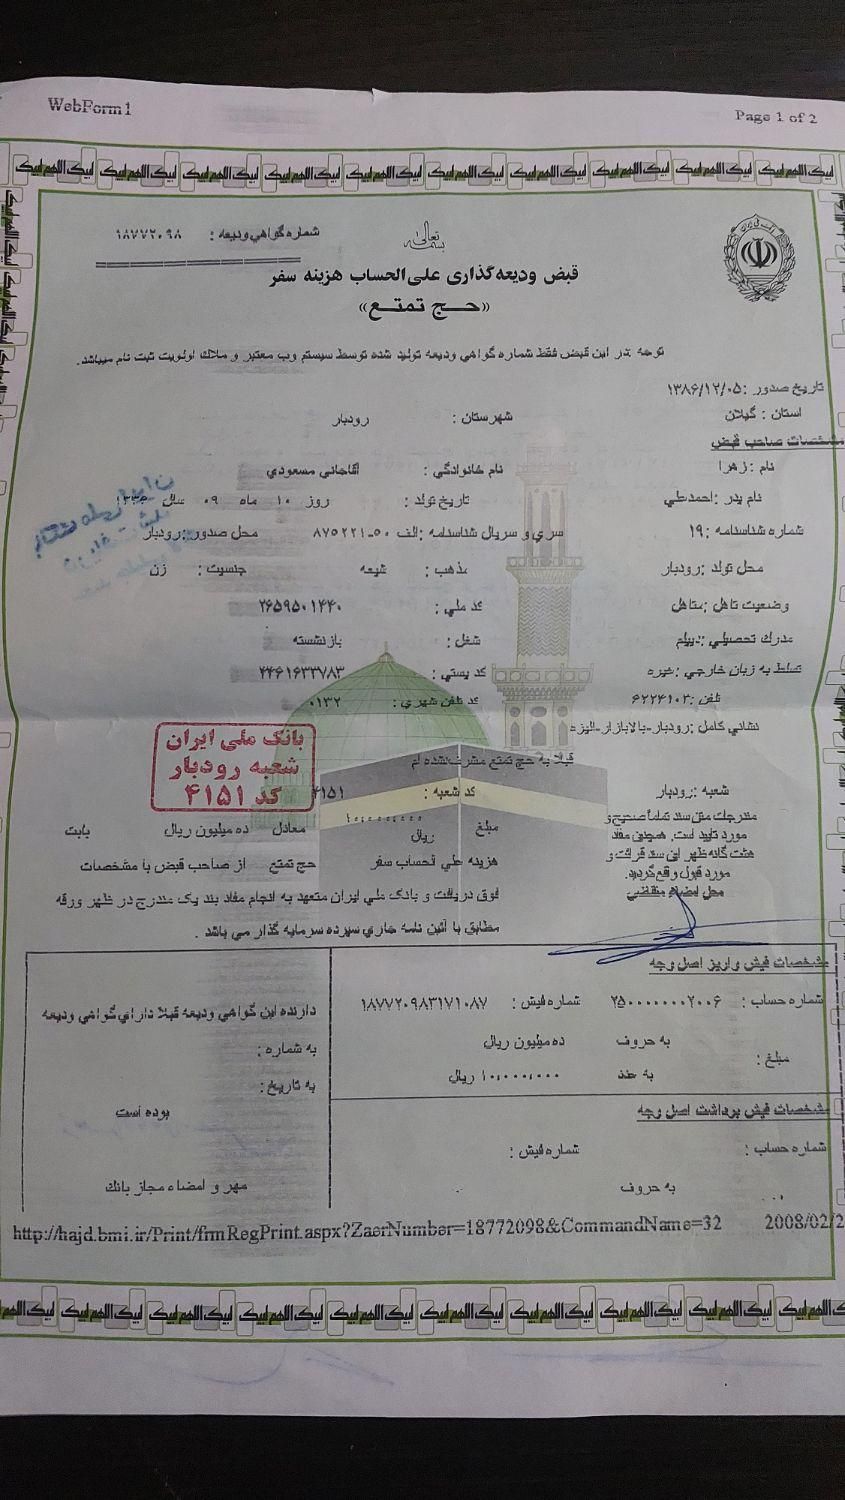 WebForm1
Page 1 of 2
بسمه تعالی
شماره گواهي وديعه : ۱۸۷۷۲۰۹۸
قبض ودیعه گذاری علی الحساب هزینه سفر
«حـج تمتـع»
توجه :در اين قبض فقط شماره گواهي وديعه توليد شده توسط سيستم وب معتبر و ملاك اولويت ثبت نام ميباشد.
تاريخ صدور :۱۳۸۶/۱۲/۰۵
استان : گيلان شهرستان : رودبار
مشخصات صاحب قبض
نام : زهرا نام خانوادگي : آقاجاني مسعودي
نام پدر :احمدعلي تاريخ تولد : روز ۱۰ ماه ۰۹ سال
شماره شناسنامه :۱۹ سري و سريال شناسنامه :الف ۵۰-۸۷۵۲۲۱ محل صدور :رودبار
محل تولد :رودبار مذهب : شيعه جنسيت : زن
وضعيت تاهل :متاهل كد ملي : ۲۶۵۹۵۰۱۴۴۰
مدرك تحصيلي :ديپلم شغل : بازنشسته
تسلط به زبان خارجي :غيره كد پستي : ۴۴۶۱۶۳۳۷۸۳
تلفن :۶۲۲۴۱۰۲ كد تلفن شهري : ۰۱۳۲
نشاني كامل :رودبار-بالابازار-اليزه
قبلا به حج تمتع مشرف نشده ام
بانک ملی ایران
شعبه رودبار
کد ۴۱۵۱
شعبه :رودبار كد شعبه : ۴۱۵۱
مندرجات متن سند تماماً صحيح و
مورد تاييد است. همچنين مفاد
هشت گانه ظهر اين سند قرائت و
مورد قبول واقع گرديد.
محل امضاء متقاضي
مبلغ ۱۰,۰۰۰,۰۰۰ ريال معادل ده ميليون ريال بابت
هزينه علي الحساب سفر حج تمتع از صاحب قبض با مشخصات
فوق دريافت و بانك ملي ايران متعهد به انجام مفاد بند يك مندرج در ظهر ورقه
مطابق با آئين نامه جاري سپرده سرمايه گذار مي باشد .
مشخصات فيش واريز اصل وجه
شماره حساب : ۲۵۰۰۰۰۰۰۰۲۰۰۶ شماره فيش : ۱۸۷۷۲۰۹۸۳۱۷۱۰۸۷
مبلغ : به حروف ده ميليون ريال
به عدد ۱۰,۰۰۰,۰۰۰ ريال
مشخصات فيش برداشت اصل وجه
شماره حساب : شماره فيش :
به حروف
دارنده اين گواهي وديعه قبلا داراي گواهي وديعه
به شماره :
به تاريخ :
بوده است
مهر و امضاء مجاز بانك
http://hajd.bmi.ir/Print/frmRegPrint.aspx?ZaerNumber=18772098&CommandName=32 2008/02/2